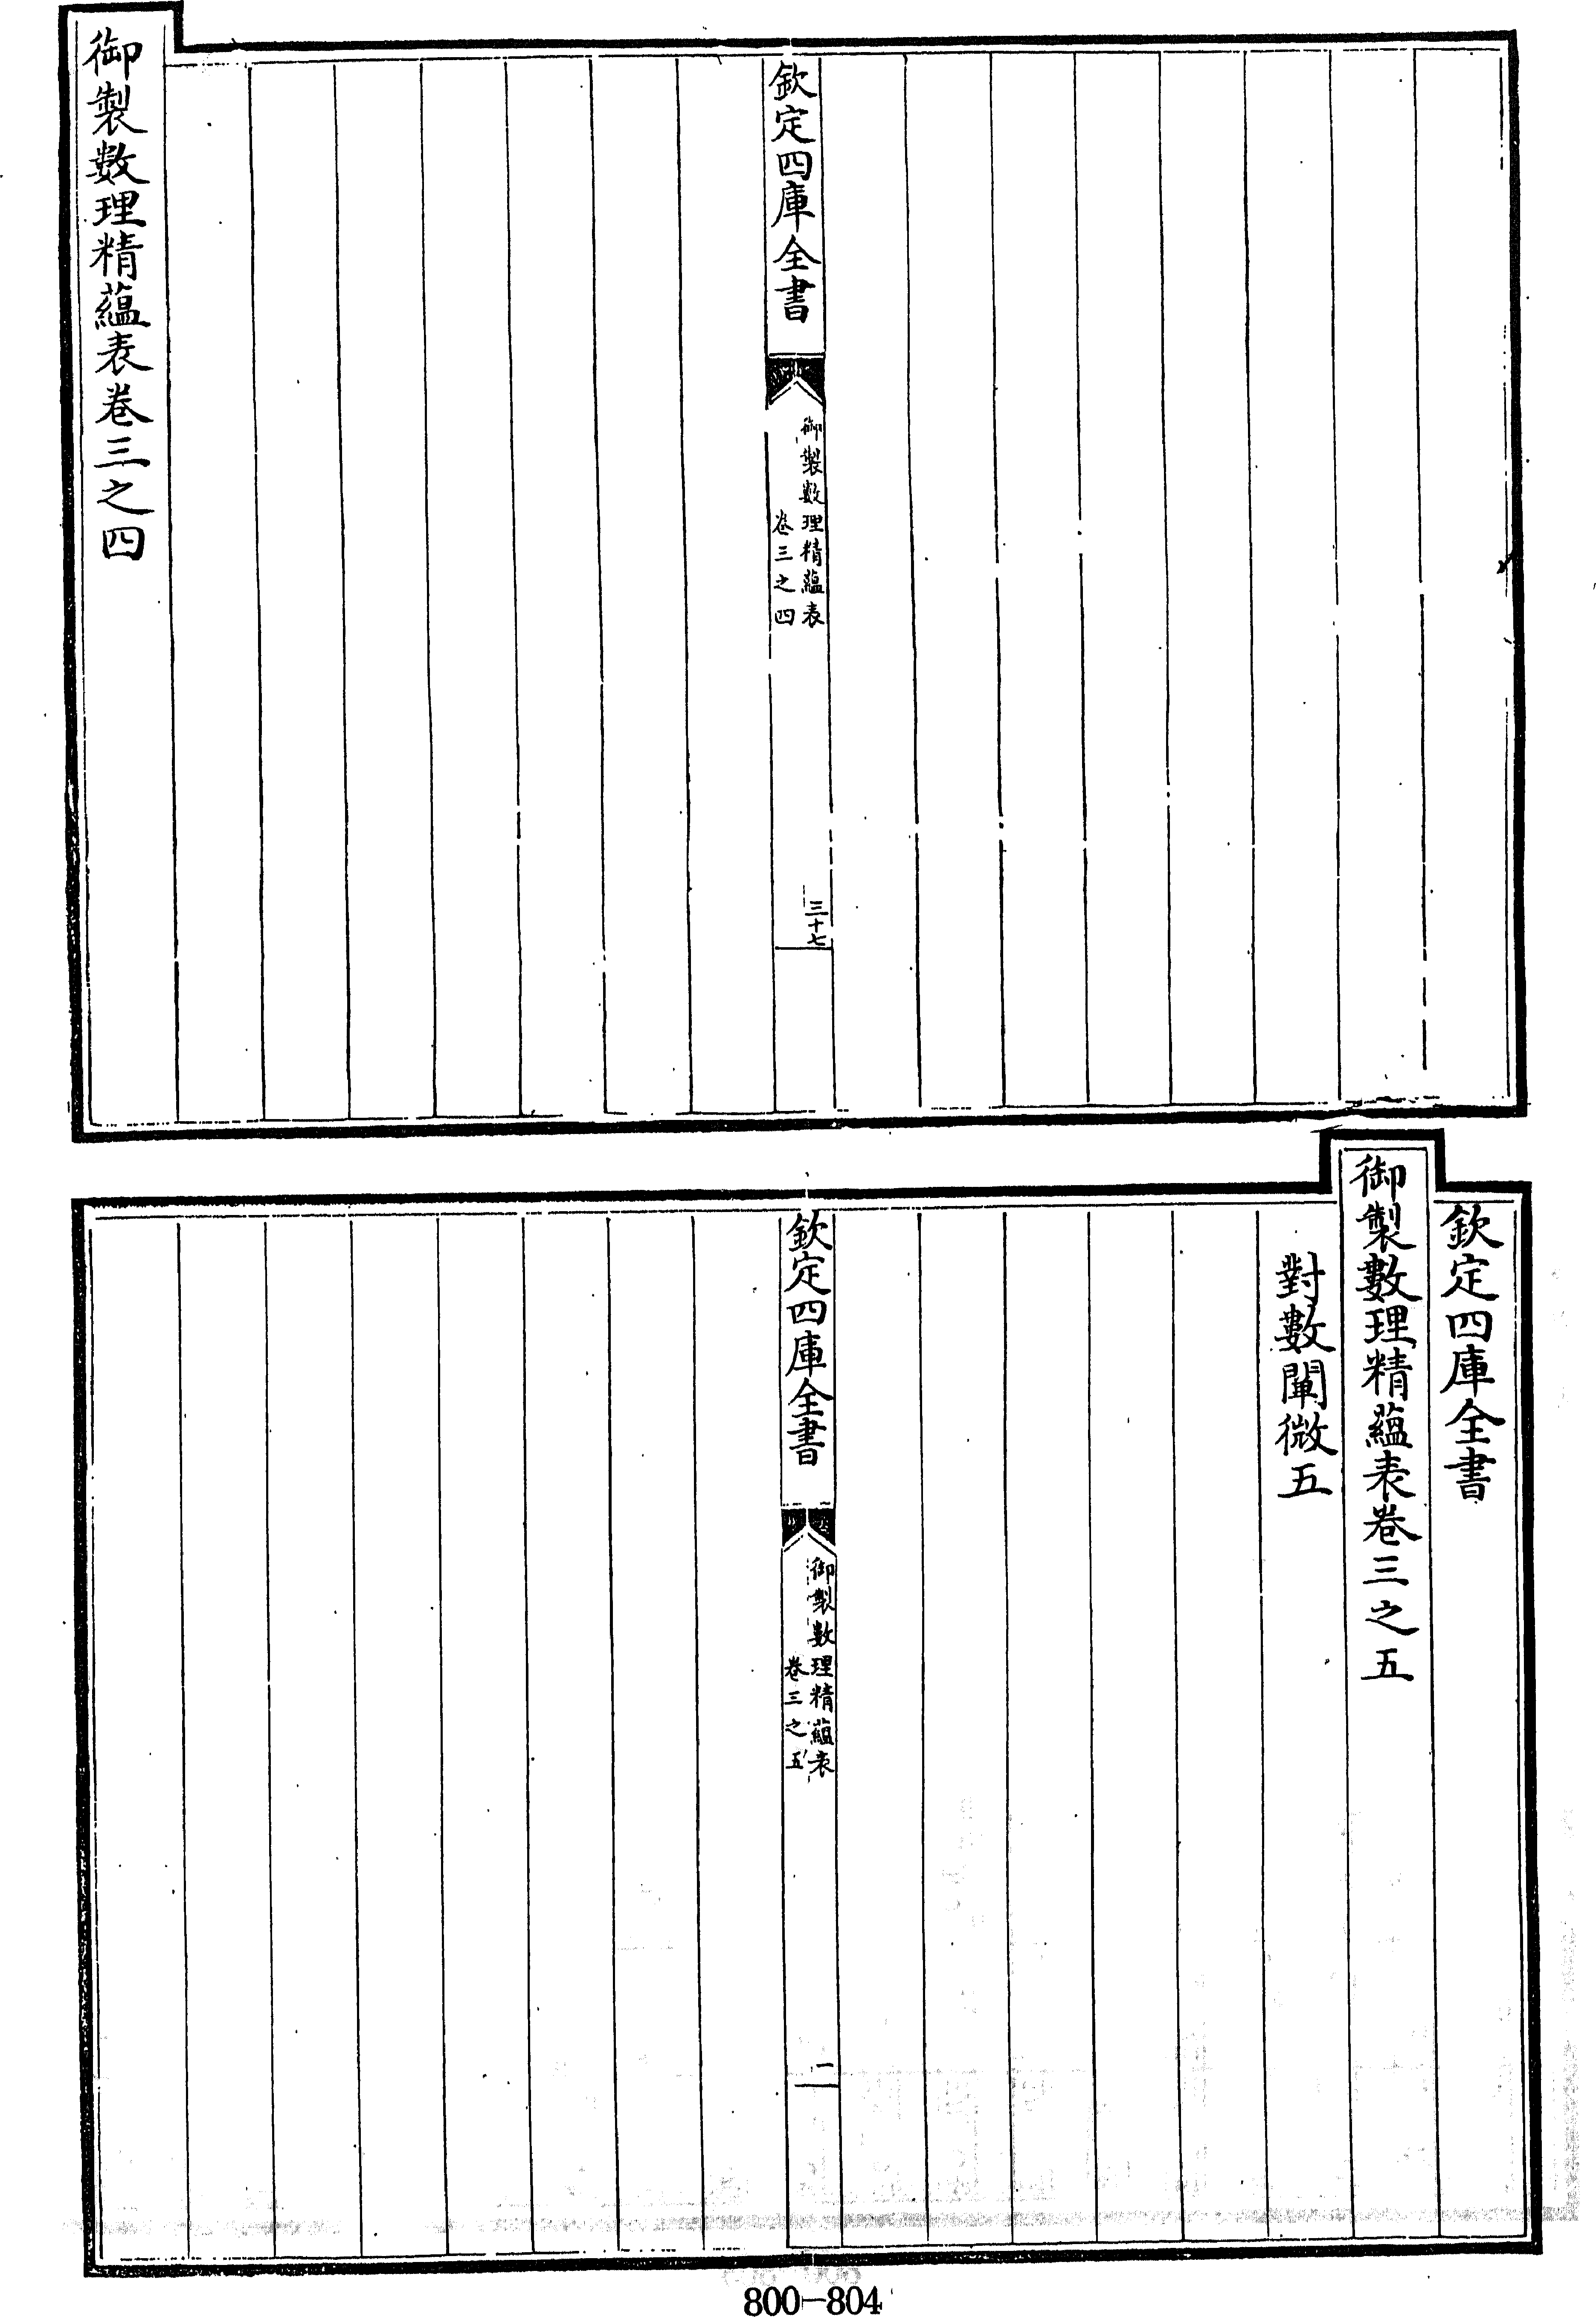 欽定四庫全書
御製數理精蘊表
卷三之四
三十七
御製數理精蘊表卷三之四
欽定四庫全書
御製數理精蘊表卷三之五
對數闡微五
欽定四庫全書
御製數理精蘊表
卷三之五
一
800-804